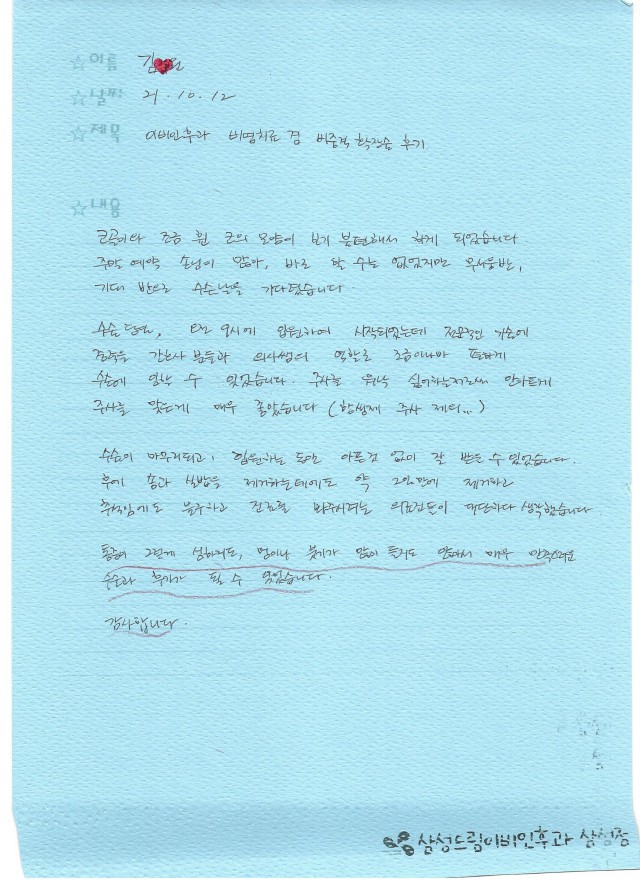 ☆이름 김
☆날짜 21.10.12
☆제목 이비인후과 비염치료 겸 비중격 확장술 후기
☆내용
코골이와 조금 휜 코의 모양이 보기 불편해서 하게 되었습니다
주말 예약 손님이 많아, 바로 할 수는 없었지만 우려반,
기대 반으로 수술날을 기다렸습니다.
수술당일, 오전 9시에 입원하여 시작되었는데 전문적인 기술에
간호사 분들과 의사쌤의 역할로 조금이나마 편하게
수술에 임할 수 있었습니다. 주사를 워낙 싫어하는지라 안아프게
주사를 맞은게 매우 좋았습니다 (항생제 주사 제외...)
수술이 마무리되고, 입원하는 동안 아픈것 없이 잘 받을 수 있었습니다.
후에 솜과 실밥을 제거하는데에도 약 2일만에 제거하고
추석임에도 불구하고 진료를 봐주시려는 의료진들이 대단하다 생각했습니다
통증이 그렇게 심하지도, 멍이나 붓기가 많이 들지도 않아서 매우 만족스러운
수술과 후기가 될 수 있었습니다.
감사합니다.
삼성드림이비인후과 삼성점